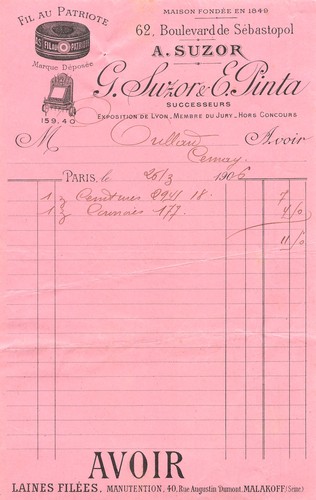 FIL AU PATRIOTE
MAISON FONDÉE EN 1849
62, Boulevard de Sébastopol
FIL AU PATRIOTE
A. SUZOR
Marque Déposée
G. Suzor & E. Pinta
SUCCESSEURS
EXPOSITION DE LYON, MEMBRE DU JURY, HORS CONCOURS
159.40
M Avoir
Cernay
PARIS, le 26/3 1906
1 Ceintures 2941 18. 7
1 177 4/0
11/0
AVOIR
LAINES FILÉES, MANUTENTION, 40, Rue Augustin Dumont, MALAKOFF (Seine)